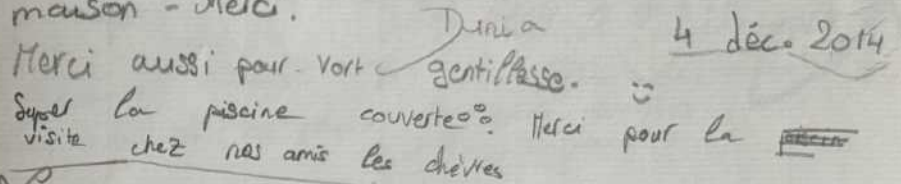 maison - Merci.
Dunia
4 déc. 2014
Merci aussi pour vort gentillesse. :)
Super la piscine couverte Merci pour la
visite chez nos amis les chèvres